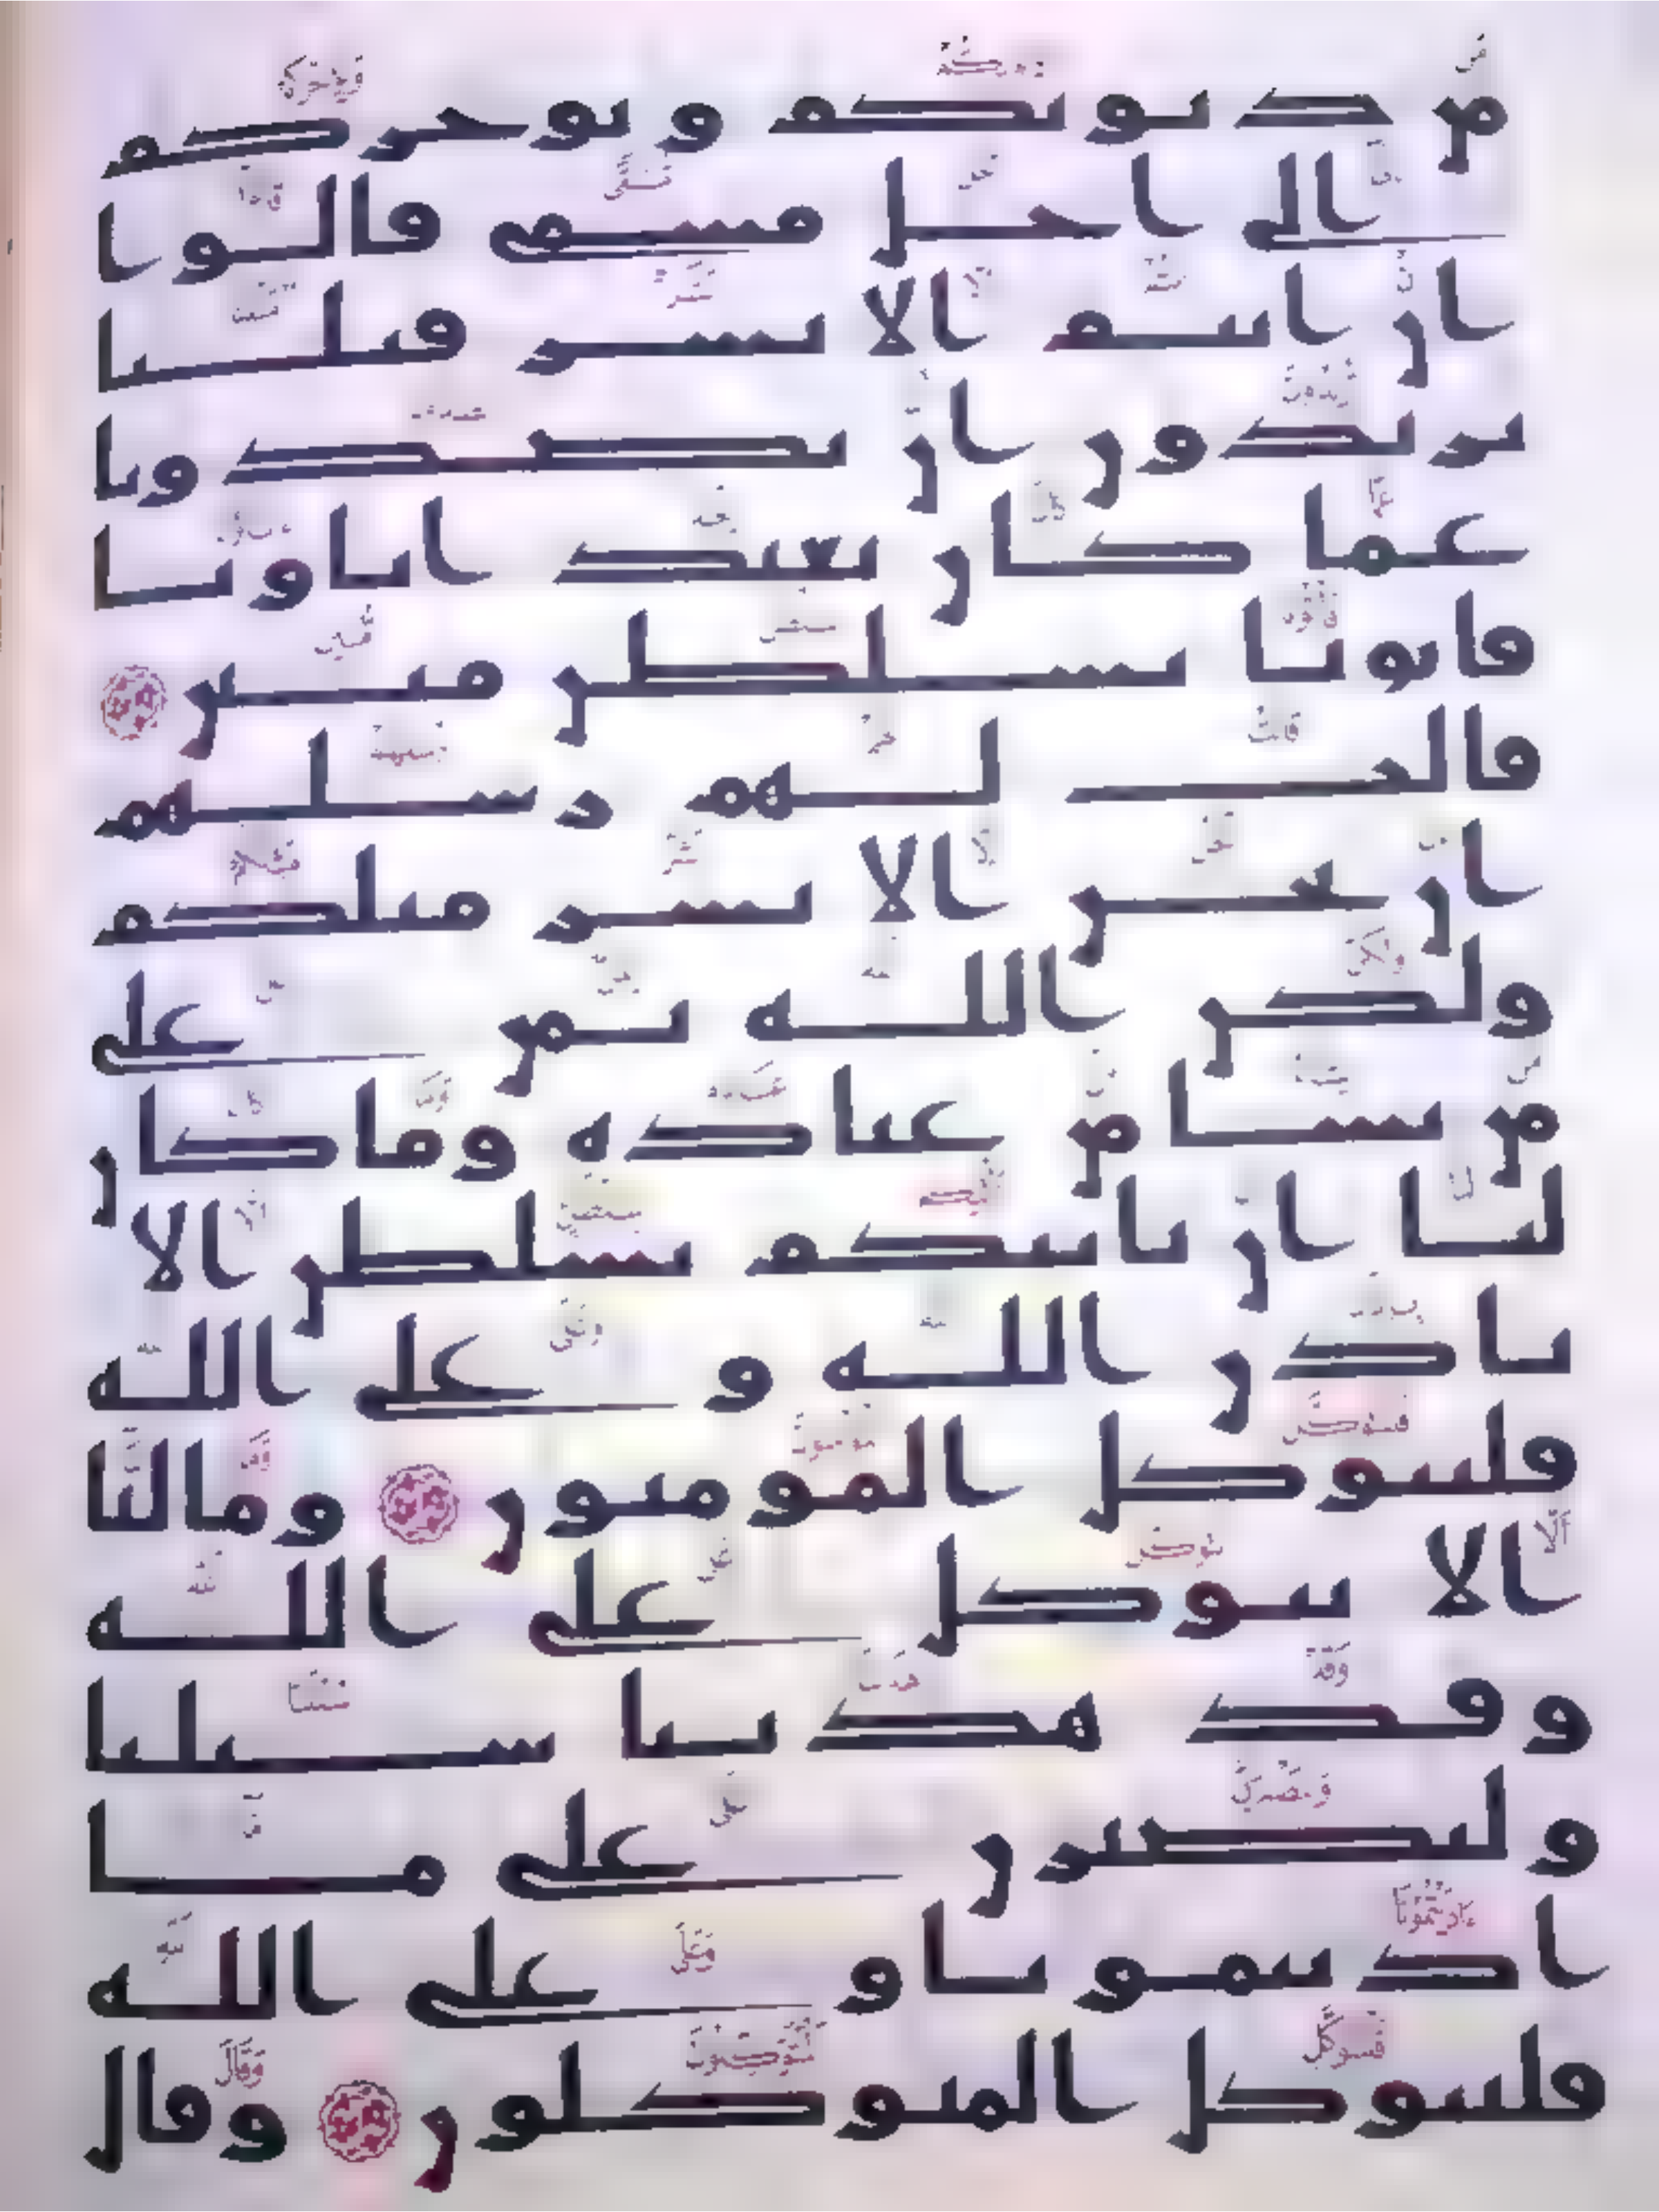 من ذنوبكم ويوخركم
الى اجل مسمى قالوا
ان انتم الا بشر مثلنا
تريدون ان تصدونا
عما كان يعبد اباونا
فاتونا بسلطن مبين
قالت لهم رسلهم
ان نحن الا بشر مثلكم
ولكن الله يمن على
من يشا من عباده وما كان
لنا ان ناتيكم بسلطن الا
باذن الله وعلى الله
فليتوكل المومنون وما لنا
الا نتوكل على الله
وقد هدينا سبلنا
ولنصبرن على ما
اذيتمونا وعلى الله
فليتوكل المتوكلون وقال